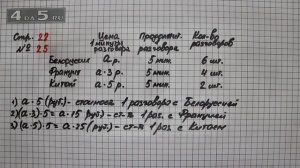 4DA5.RU
Стр. 22
№ 25
Цена 1 минуты разговора
Продолжит. разговора
Кол-во разговоров
Белоруссия а р. 5 мин. 6 шт.
Франция а·3 р. 5 мин. 4 шт.
Китай а·5 р. 5 мин. 2 шт.
1) а·5 (руб.) - стоимость 1 разговора с Белоруссией
2) (а·3)·5 = а·15 (руб.) - ст-ть 1 раз. с Францией
3) (а·5)·5 = а·25 (руб.) - ст-ть 1 раз. с Китаем